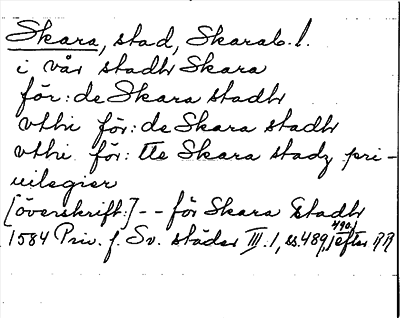 Skara, stad, Skarab. l.
i vår stadh Skara
för: de Skara stadh
vthi för: de Skara stadh
vthi för: tte Skara stadz pri-
uilegier
[överskrift:] -- för Skara Stadh
1584 Priv. f. Sv. städer III. 1, ss. 489, 490, efter RR